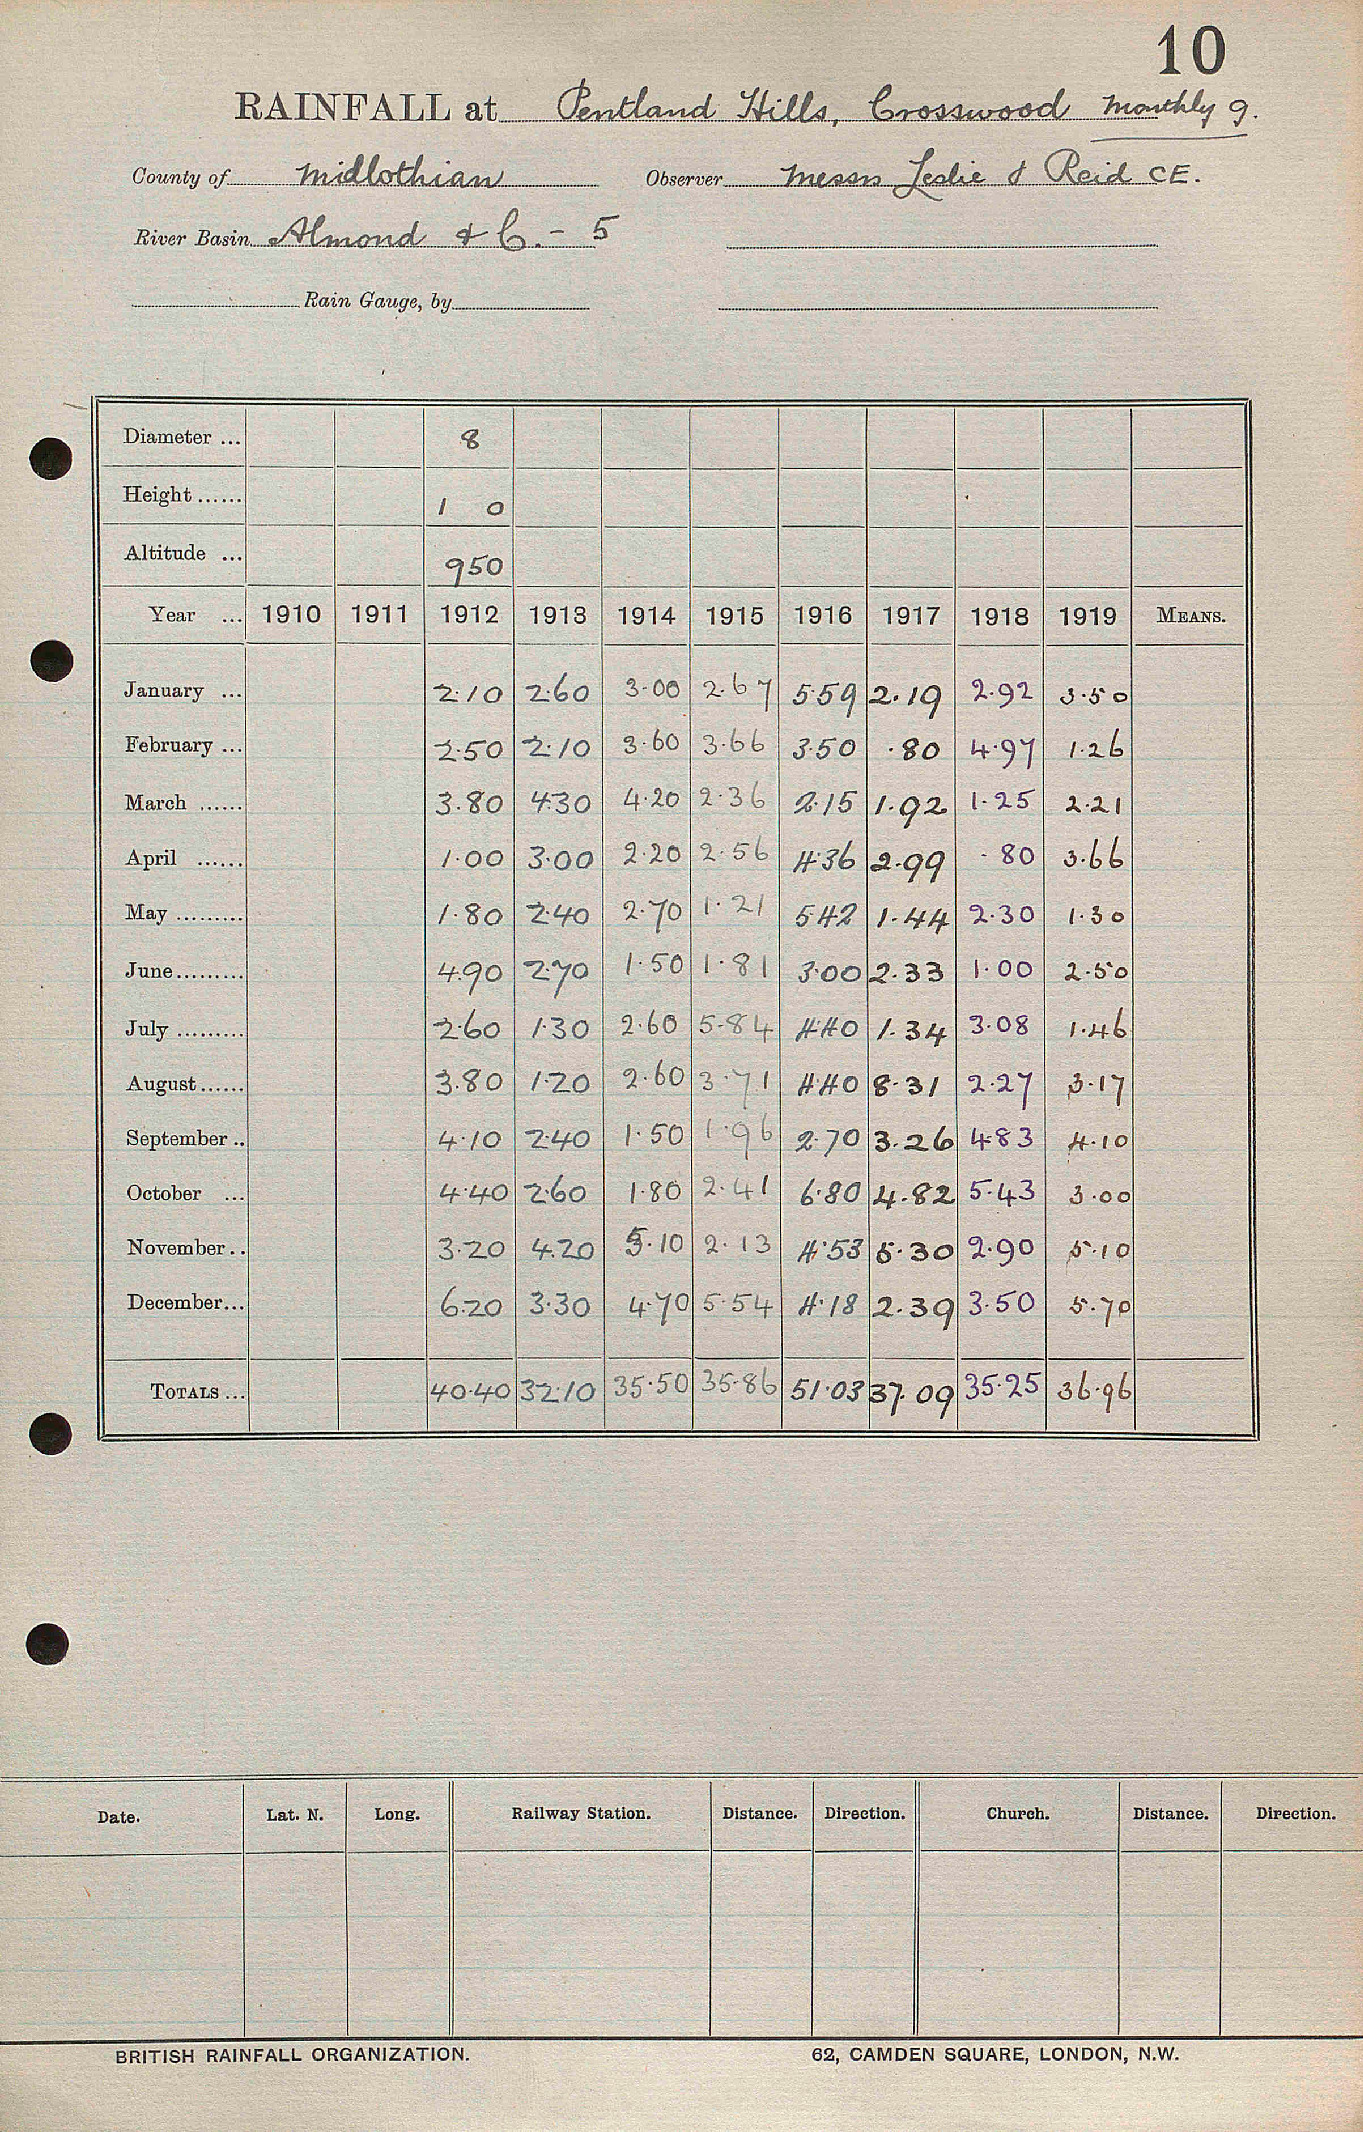 10
RAINFALL at Pentland Hills, Crosswood Monthly g.
County of Midlothian Observer Messrs Leslie & Reid CE.
River Basin Almond & C. - 5
Rain Gauge, by
Diameter ... 8
Height ...... 1 0
Altitude ... 950
Year ... 1910 1911 1912 1913 1914 1915 1916 1917 1918 1919 MEANS.
January ... 2.10 2.60 3.00 2.67 5.59 2.19 2.92 3.50
February ... 2.50 2.10 3.60 3.66 3.50 .80 4.97 1.26
March ...... 3.80 4.30 4.20 2.36 2.15 1.92 1.25 2.21
April ...... 1.00 3.00 2.20 2.56 4.36 2.99 .80 3.66
May ......... 1.80 2.40 2.70 1.21 5.42 1.44 2.30 1.30
June......... 4.90 2.70 1.50 1.81 3.00 2.33 1.00 2.50
July ......... 2.60 1.30 2.60 5.84 4.40 1.34 3.08 1.46
August...... 3.80 1.20 2.60 3.71 4.40 8.31 2.27 3.17
September .. 4.10 2.40 1.50 1.96 2.70 3.26 4.83 4.10
October ... 4.40 2.60 1.80 2.41 6.80 4.82 5.43 3.00
November .. 3.20 4.20 5.10 2.13 4.53 5.30 2.90 5.10
December... 6.20 3.30 4.70 5.54 4.18 2.39 3.50 5.70
TOTALS ... 40.40 32.10 35.50 35.86 51.03 37.09 35.25 36.96
Date. Lat. N. Long. Railway Station. Distance. Direction. Church. Distance. Direction.
BRITISH RAINFALL ORGANIZATION. 62, CAMDEN SQUARE, LONDON, N.W.